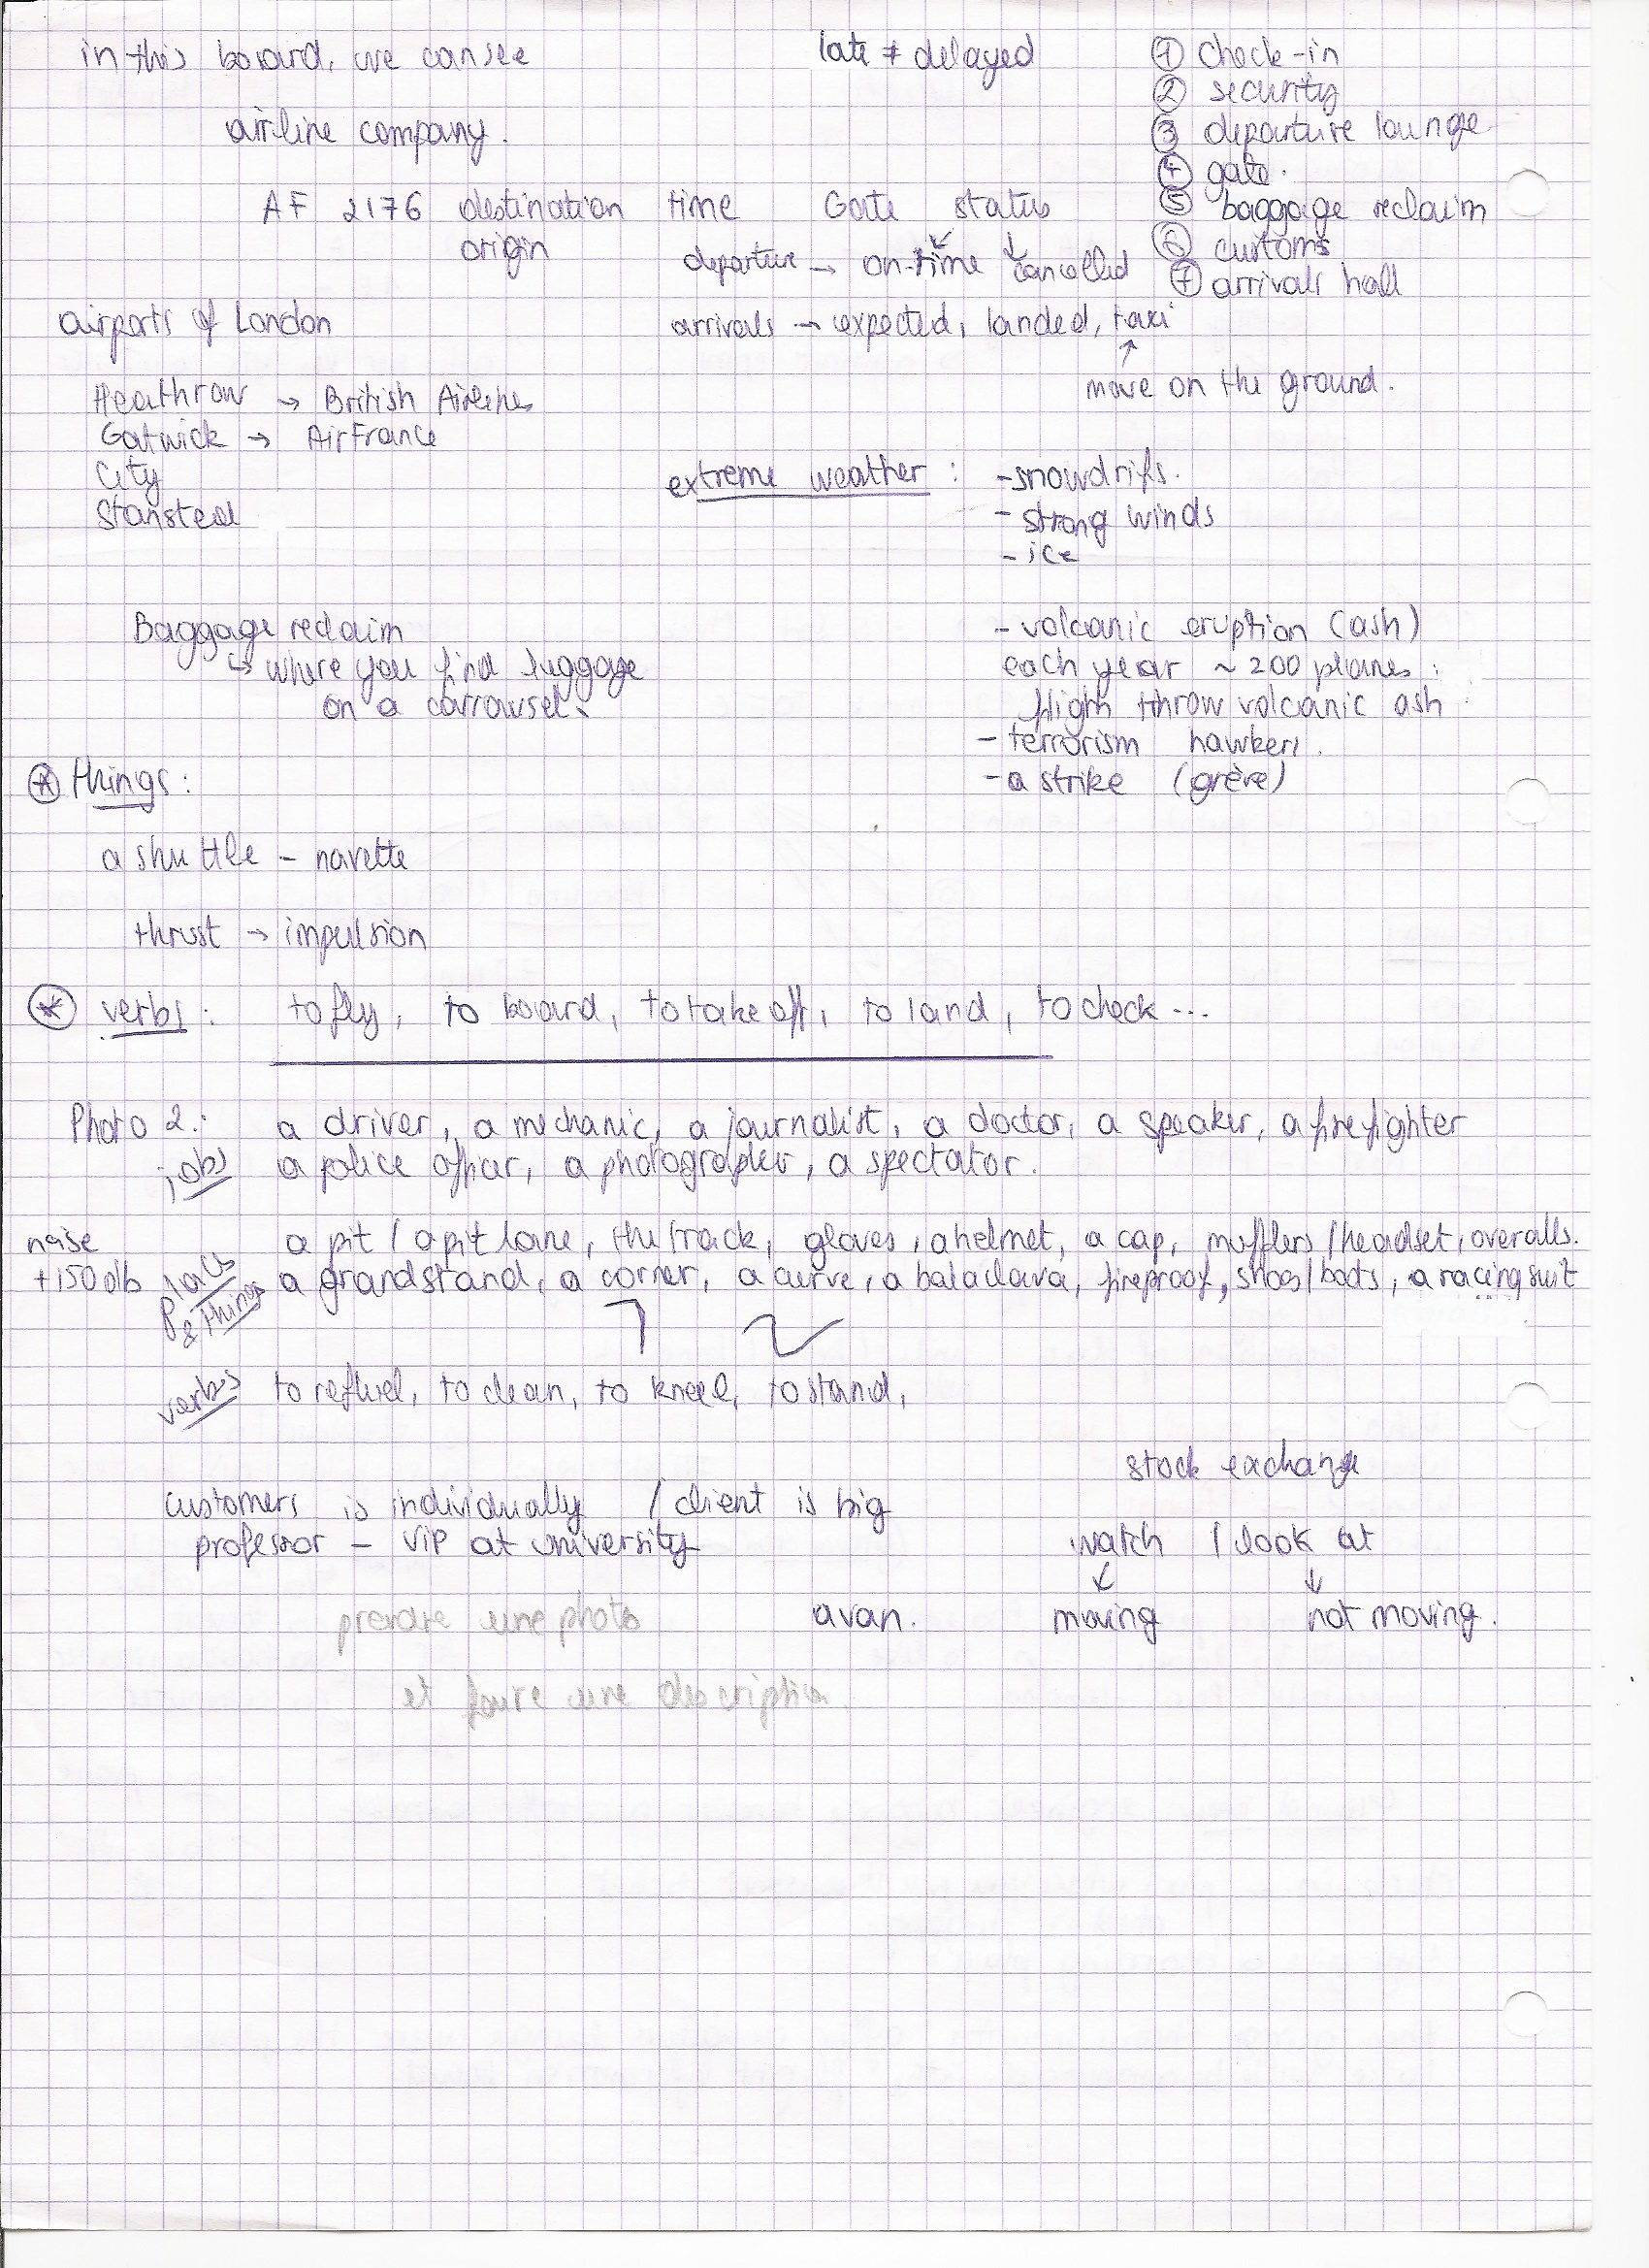 in this board, we can see
late ≠ delayed
① check-in
② security
③ departure lounge
④ gate.
⑤ baggage reclaim
⑥ customs
⑦ arrivals hall
airline company.
AF 2176 destination time Gate status
origin
departure → on-time cancelled
arrivals → expected, landed, taxi
move on the ground.
airports of London
Heathrow → British Airlines
Gatwick → AirFrance
City
Stansted
extreme weather :
- snowdrifs.
- strong winds
- ice
- volcanic eruption (ash)
each year ~ 200 planes :
fligh throw volcanic ash
- terrorism hawkers.
- a strike (grève)
Baggage reclaim
↳ where you find luggage
on a carrousel.
things :
a shuttle - navette
thrust → impulsion
verbs : to fly, to board, to take off, to land, to check ...
Photo 2 : a driver, a mechanic, a journalist, a doctor, a speaker, a firefighter
jobs a police officer, a photographer, a spectator.
noise a pit / a pit lane, the track, gloves, a helmet, a cap, mufflers / headset, overalls.
+150 db places & things a grandstand, a corner, a curve, a balaclava, fireproof, shoes / boots, a racing suit
verbs to refuel, to clean, to kneel, to stand,
stock exchange
customers is individually / client is big
professor - VIP at university
watch / look at
moving not moving.
prendre une photo
avan.
et faire une description.